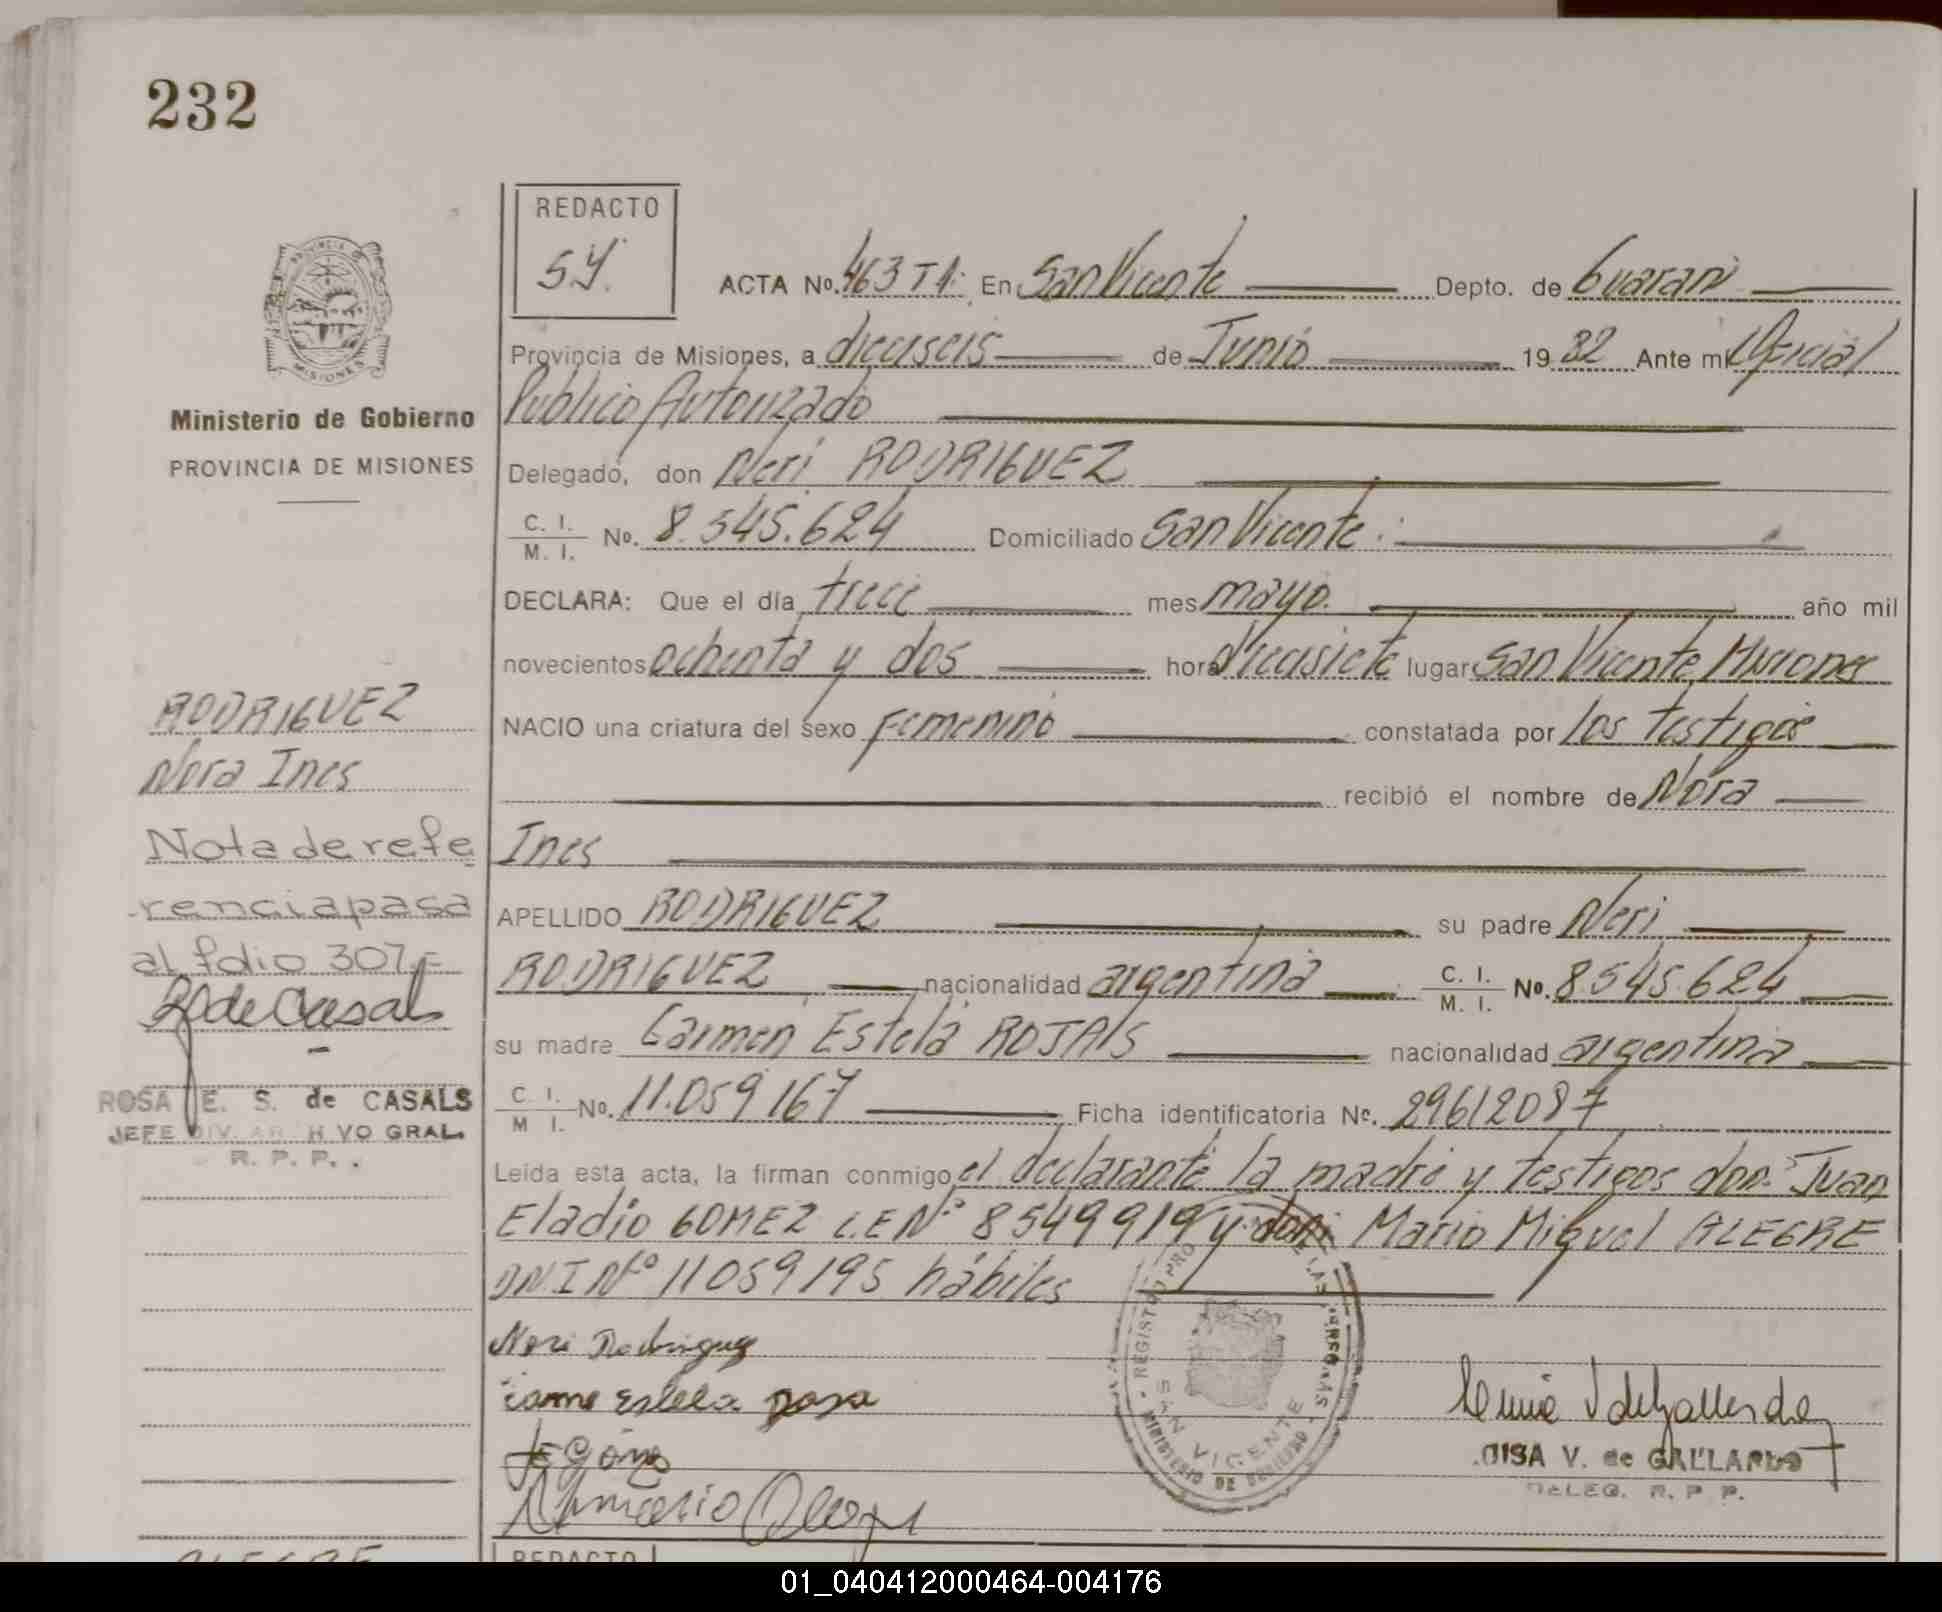 232
REDACTO
S.Y.
ACTA No. 463 T1: En San Vicente Depto. de Guarani
Provincia de Misiones, a dieciseis de Junio 1982 Ante mi Oficial
Publico Autorizado
Delegado, don Neri RODRIGUEZ
C. I.
M. I. No. 8.545.624 Domiciliado San Vicente:
DECLARA: Que el día trece mes mayo. año mil
novecientos ochenta y dos hora diecisiete lugar San Vicente Misiones
NACIO una criatura del sexo femenino constatada por los testigos
recibió el nombre de Nora
Ines
APELLIDO RODRIGUEZ su padre Neri
RODRIGUEZ nacionalidad argentina C. I.
M. I. No. 8.545.624
su madre Carmen Estela ROJAS nacionalidad argentina
C. I.
M I. No. 11.059.167 Ficha identificatoria No. 29612087
Leída esta acta, la firman conmigo el declarante la madre y testigos don: Juan
Eladio GOMEZ L.E Nº 8549919 y don: Mario Miguel ALEGRE
D.N.I Nº 11059195 hábiles
Neri Rodriguez
PROVINCIA DE
MISIONES
Ministerio de Gobierno
PROVINCIA DE MISIONES
RODRIGUEZ
Nora Ines
Nota de refe
rencia pasa
al folio 307.=
de Casals
ROSA E. S. de CASALS
JEFE DIV. ARCHIVO GRAL.
R. P. P.
REGISTRO PRO DE LAS PERSONAS
SAN VICENTE
MINISTERIO DE GOBIERNO
V. de GALLARDO
DELEG. R. P. P.
ALEGRE
REDACTO
01_040412000464-004176